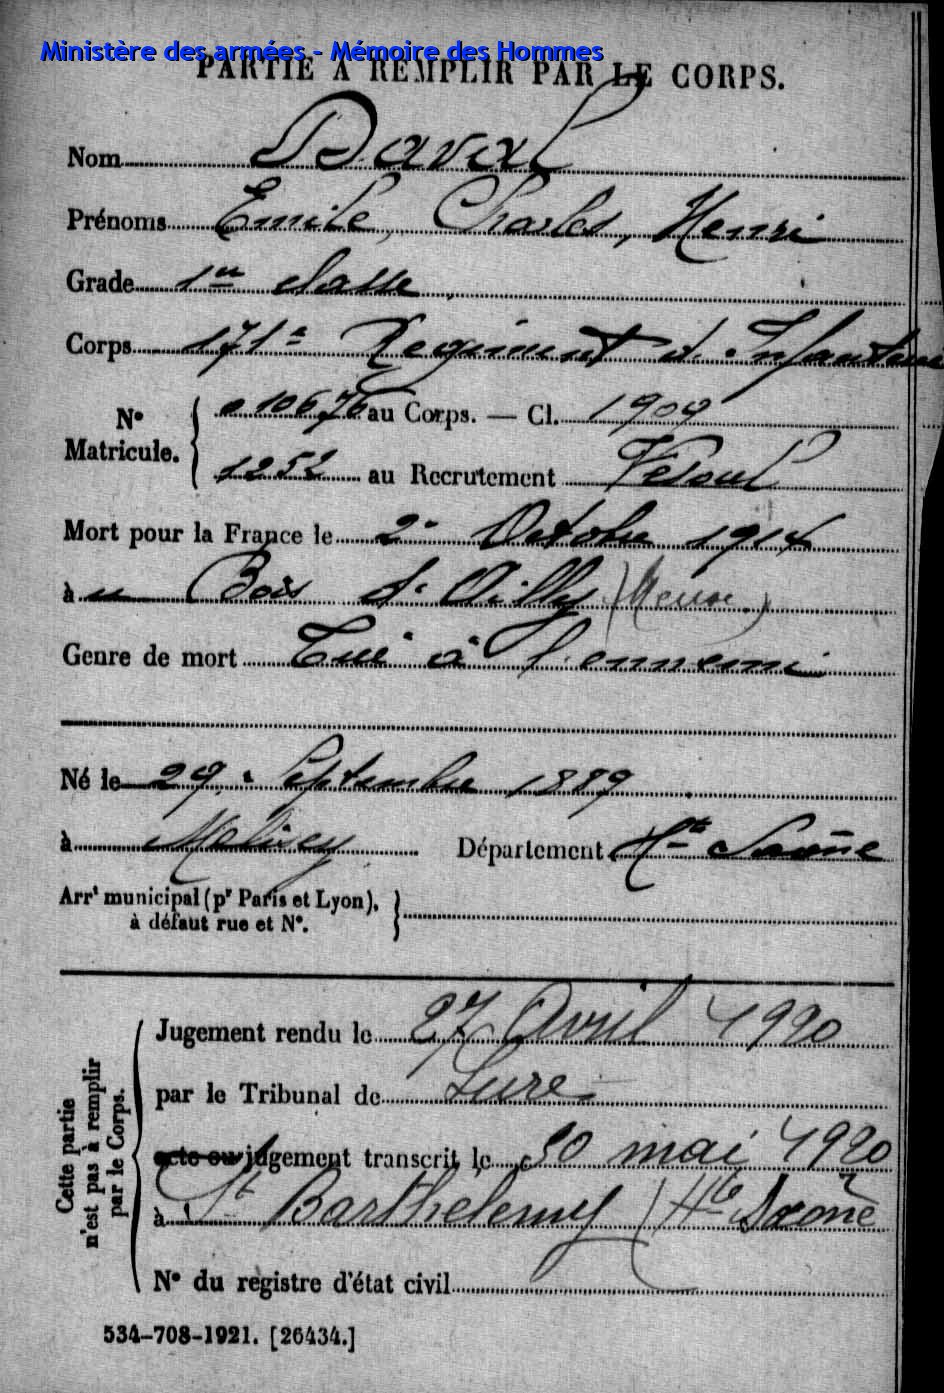 Ministère des armées - Mémoire des Hommes
PARTIE À REMPLIR PAR LE CORPS.
Nom Daval
Prénoms Emile, Charles, Henri
Grade 1re classe
Corps 171e Régiment d'Infanterie
N° Matricule. 010676 au Corps. — Cl. 1909
1252 au Recrutement Vesoul
Mort pour la France le 2 Octobre 1914
à au Bois d'Ailly (Meuse)
Genre de mort Tué à l'ennemi
Né le 29 Septembre 1889
à Melisey Département Hte Saône
Arrt municipal (pr Paris et Lyon),
à défaut rue et N°.
Cette partie n'est pas à remplir par le Corps.
Jugement rendu le 27 Avril 1920
par le Tribunal de Lure
acte ou jugement transcrit le 30 mai 1920
à St Barthélemy (Hte Saône
N° du registre d'état civil
534-708-1921. [26434.]